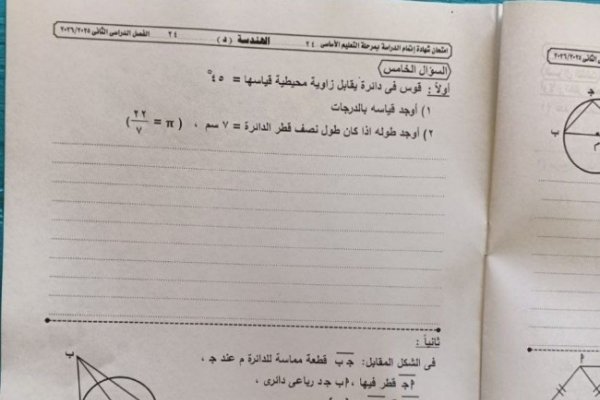 امتحان شهادة إتمام الدراسة بمرحلة التعليم الأساسى ٢٤ الهندسة (٥) ٢٤ الفصل الدراسى الثانى ٢٠٢٦/٢٠٢٥
السؤال الخامس
أولاً : قوس فى دائرة يقابل زاوية محيطية قياسها = ٤٥°
١) أوجد قياسه بالدرجات
٢) أوجد طوله اذا كان طول نصف قطر الدائرة = ٧ سم ، (π = ٢٢/٧)
ثانياً :
فى الشكل المقابل: جـ ب قطعة مماسة للدائرة م عند جـ ،
أ جـ قطر فيها ، أ ب جـ د رباعى دائرى ،
ب
ثانى ٢٠٢٦/٢٠٢٥
جـ
ب
م
أ